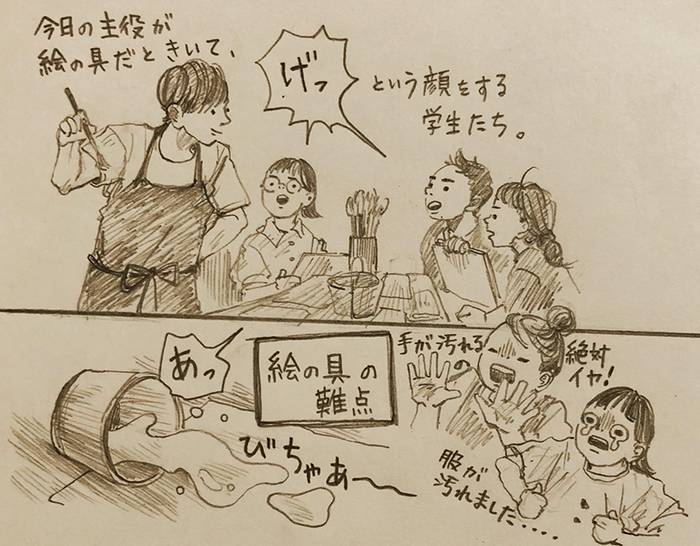 今日の主役が
絵の具だときいて、
げっ
という顔をする
学生たち。
あっ
絵の具の
難点
びちゃあ〜
手が汚れる
の
絶対
イヤ!
服が
汚れました....